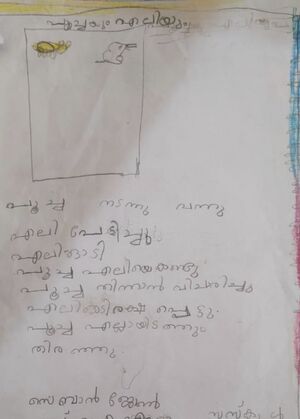 പൂച്ചയും എലിയും
പൂച്ച നടന്നു വന്നു
എലി പേടിച്ചു
എലി ഓടി
പൂച്ച എലിയെ കണ്ടു
പൂച്ച തിന്നാൻ വിചാരിച്ചു
എലി രക്ഷ പെട്ടു.
പൂച്ച എല്ലായിടത്തും
തിരഞ്ഞു.
സെബാൻ ജോൺ